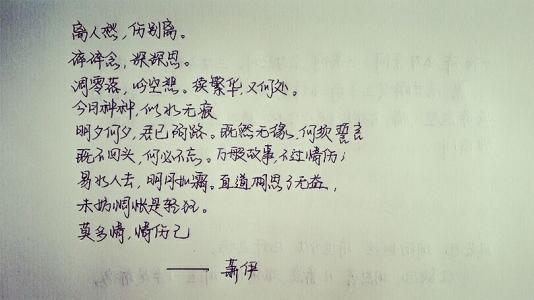 离人愁，伤别离。
碎碎念，深深思。
凋零落，吟空想。待繁华又何处。
今日种种，似水无痕
明夕何夕，君已陌路。既然无缘，何须誓言
既不回头，何必不忘。万般故事，不过情伤；
易水人去，明月如霜。直道相思了无益，
未妨惆怅是轻狂。
莫多情，情伤己
—— 萧伊